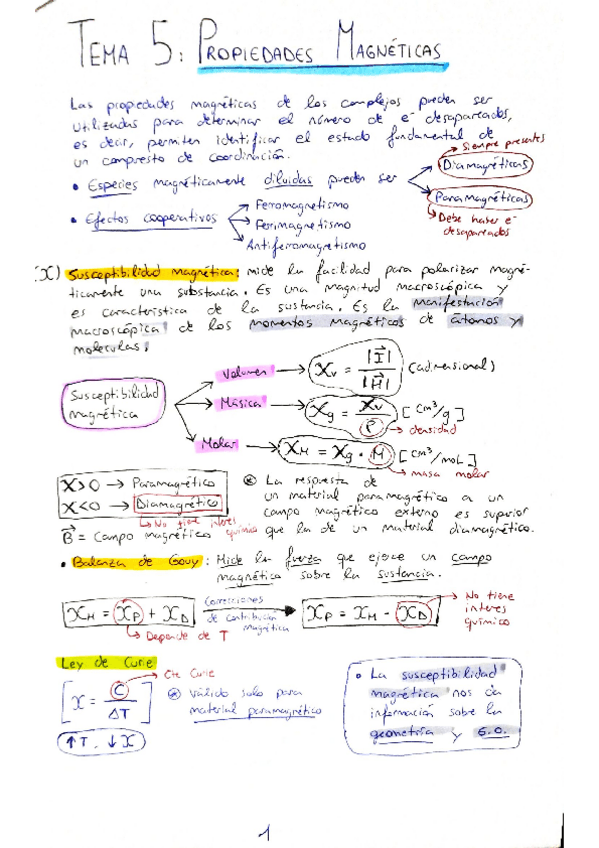 TEMA 5: PROPIEDADES MAGNÉTICAS
Las propiedades magnéticas de los complejos pueden ser
utilizadas para determinar el número de e⁻ desapareados,
es decir, permiten identificar el estado fundamental de
un compuesto de coordinación.
Siempre presentes
• Especies magnéticamente diluidas pueden ser
Diamagnéticas
Paramagnéticas
Debe haber e⁻
desapareados
• Efectos cooperativos
Ferromagnetismo
Ferrimagnetismo
Antiferromagnetismo
(X) Susceptibilidad magnética: mide la facilidad para polarizar magné-
ticamente una substancia. Es una magnitud macroscópica y
es característica de la sustancia. Es la manifestación
macroscópica de los momentos magnéticos de átomos y
moleculas.
Susceptibilidad
magnética
Volumen → Xv = |I⃗| / |H⃗| (adimensional)
Másica → Xg = Xv / ρ [cm³/g]
densidad
Molar → XM = Xg · M [cm³/mol]
masa molar
X>0 → Paramagnético
X<0 → Diamagnético
No tiene interes
químico
B⃗ = Campo magnético
⊛ La respuesta de
un material paramagnético a un
campo magnético externo es superior
que la de un material diamagnético.
• Balanza de Gouy: Mide la fuerza que ejerce un campo
magnético sobre la sustancia.
XM = XP + XD
Depende de T
Correcciones
de contribución
Magnética
XP = XM - XD
No tiene
interes
químico
Ley de Curie
Cte Curie
X = C / ΔT
⊛ válido solo para
material paramagnético
↑T. ↓X
• La susceptibilidad
magnética nos da
información sobre la
geometría y E.O.
1